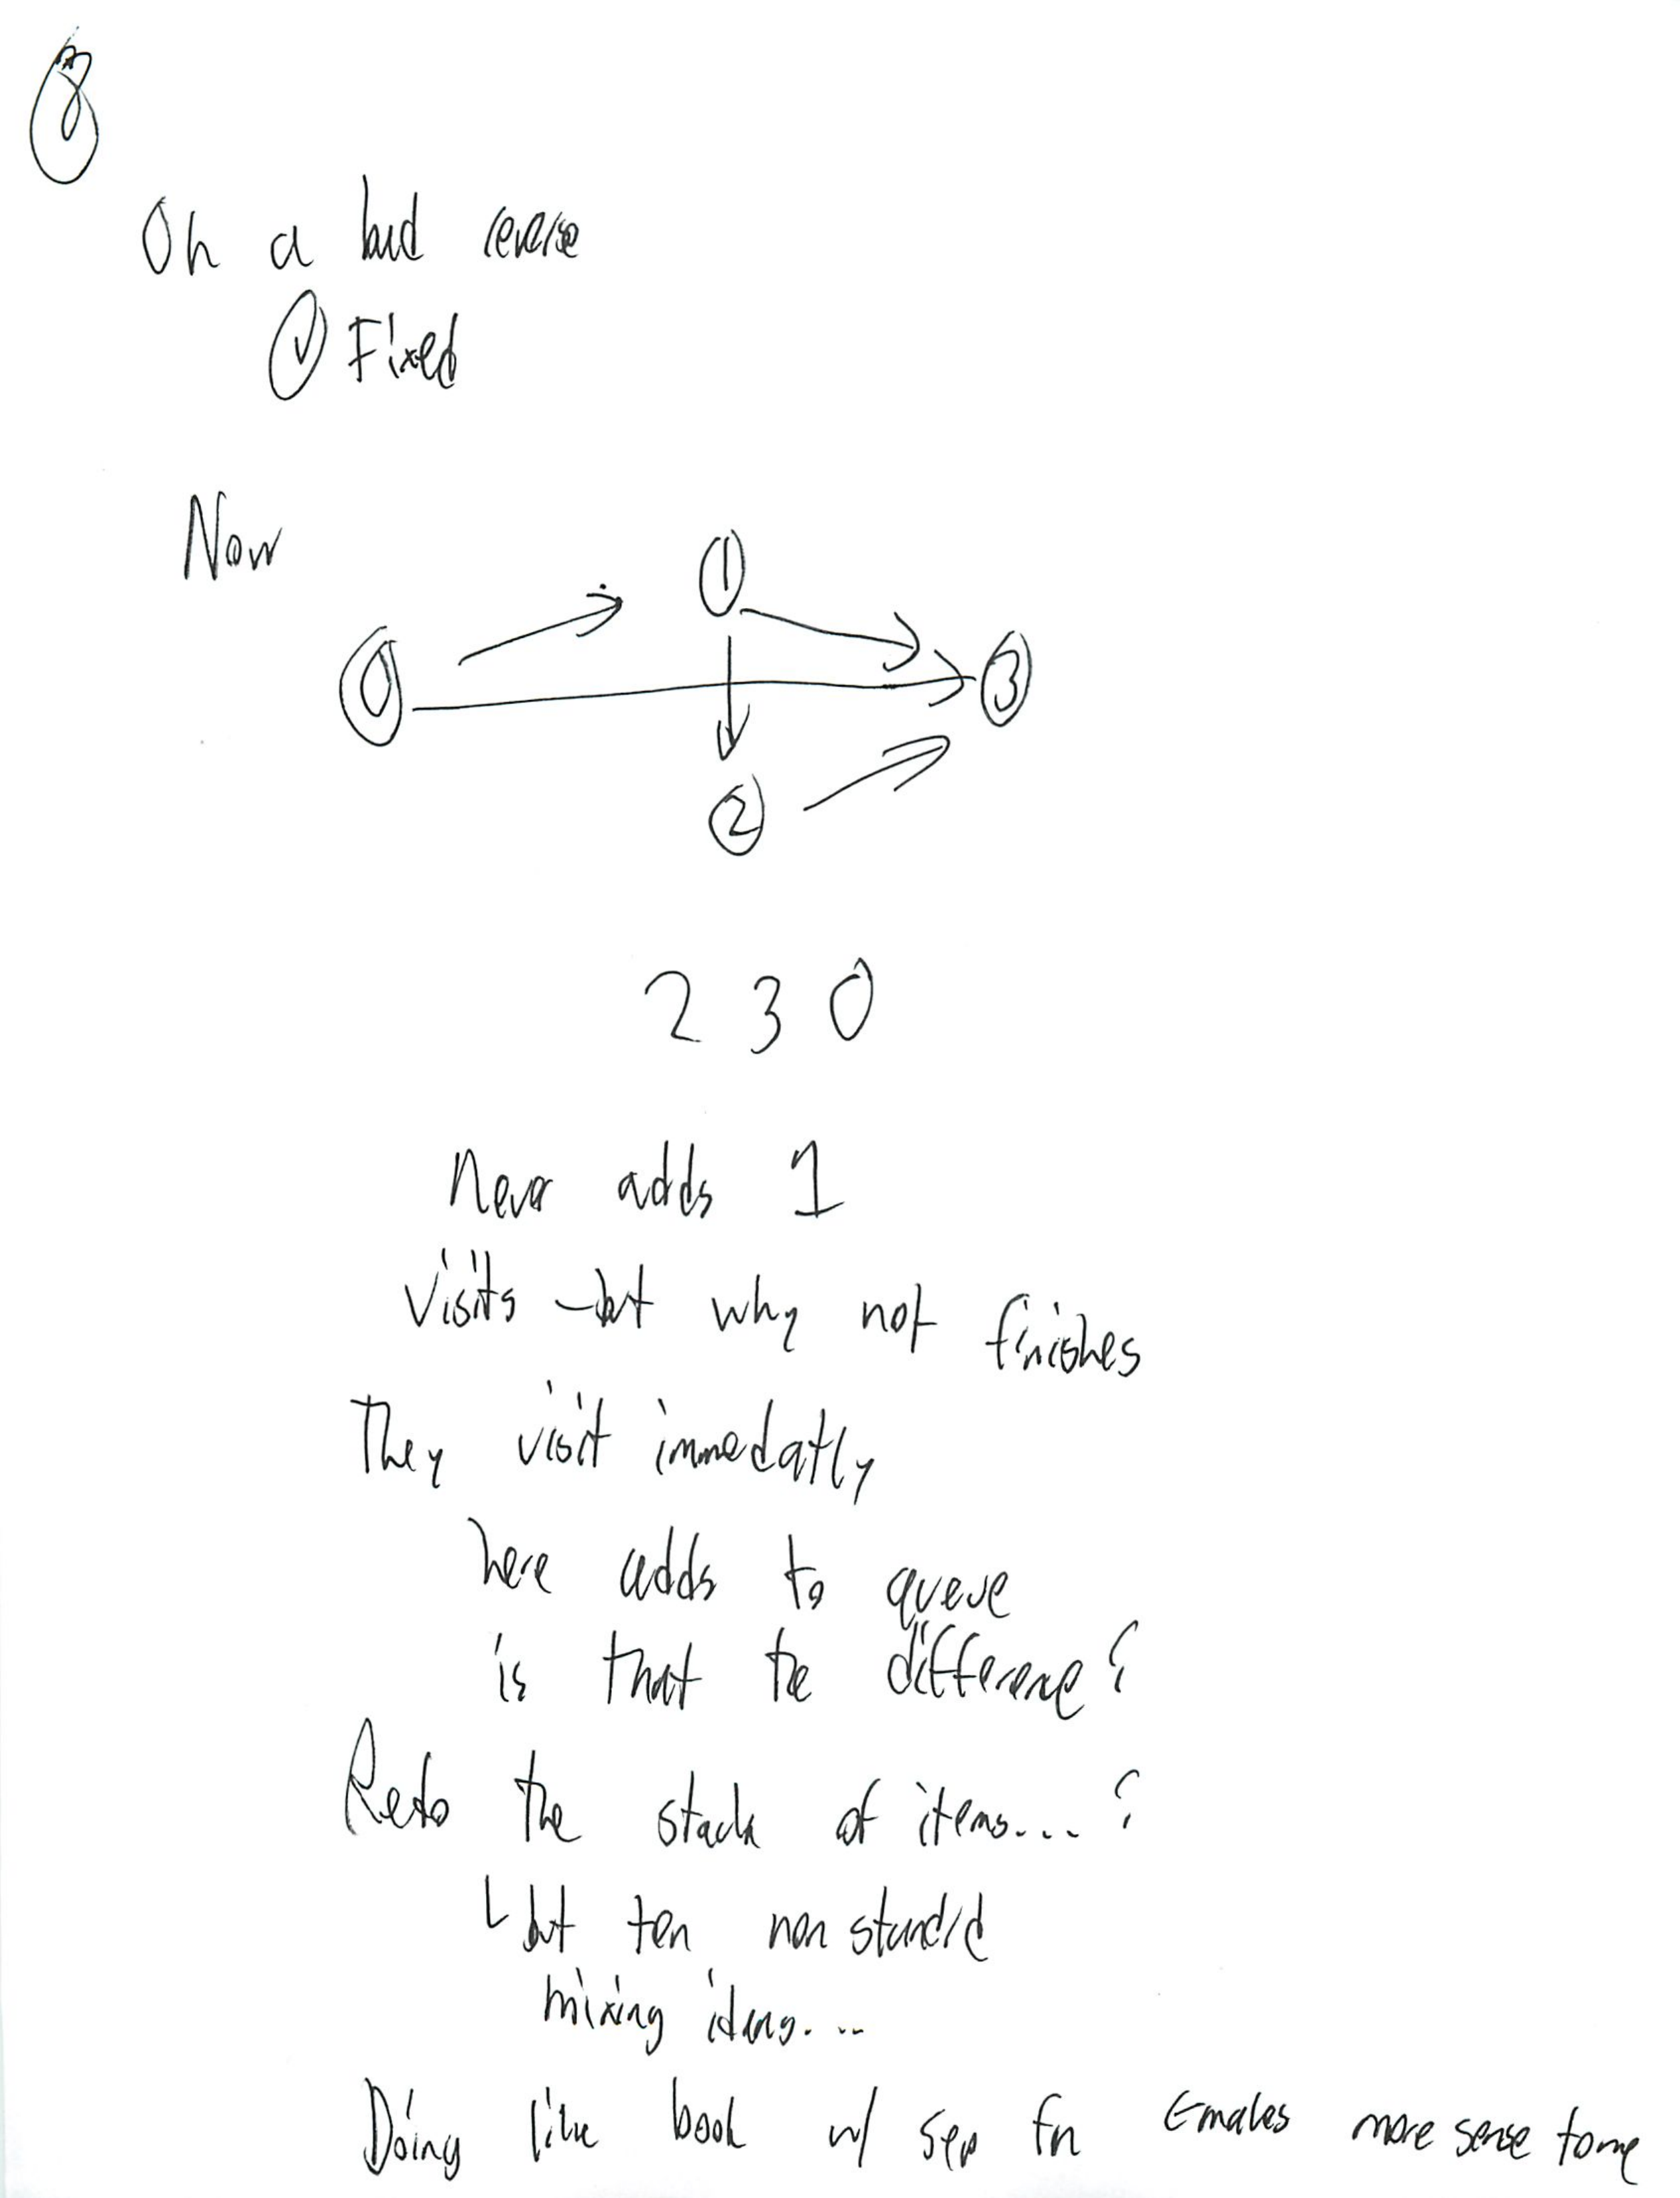 8
Oh a bad reverse
✓ Fixed
Now
1
0
3
2
2 3 0
Never adds 1
Visits - but why not finishes
They visit immedatly
here adds to queue
is that the difference?
Redo the stack of items....?
but then non standrd
mixing ideas....
Doing like book w/ sep fn ← makes more sense to me